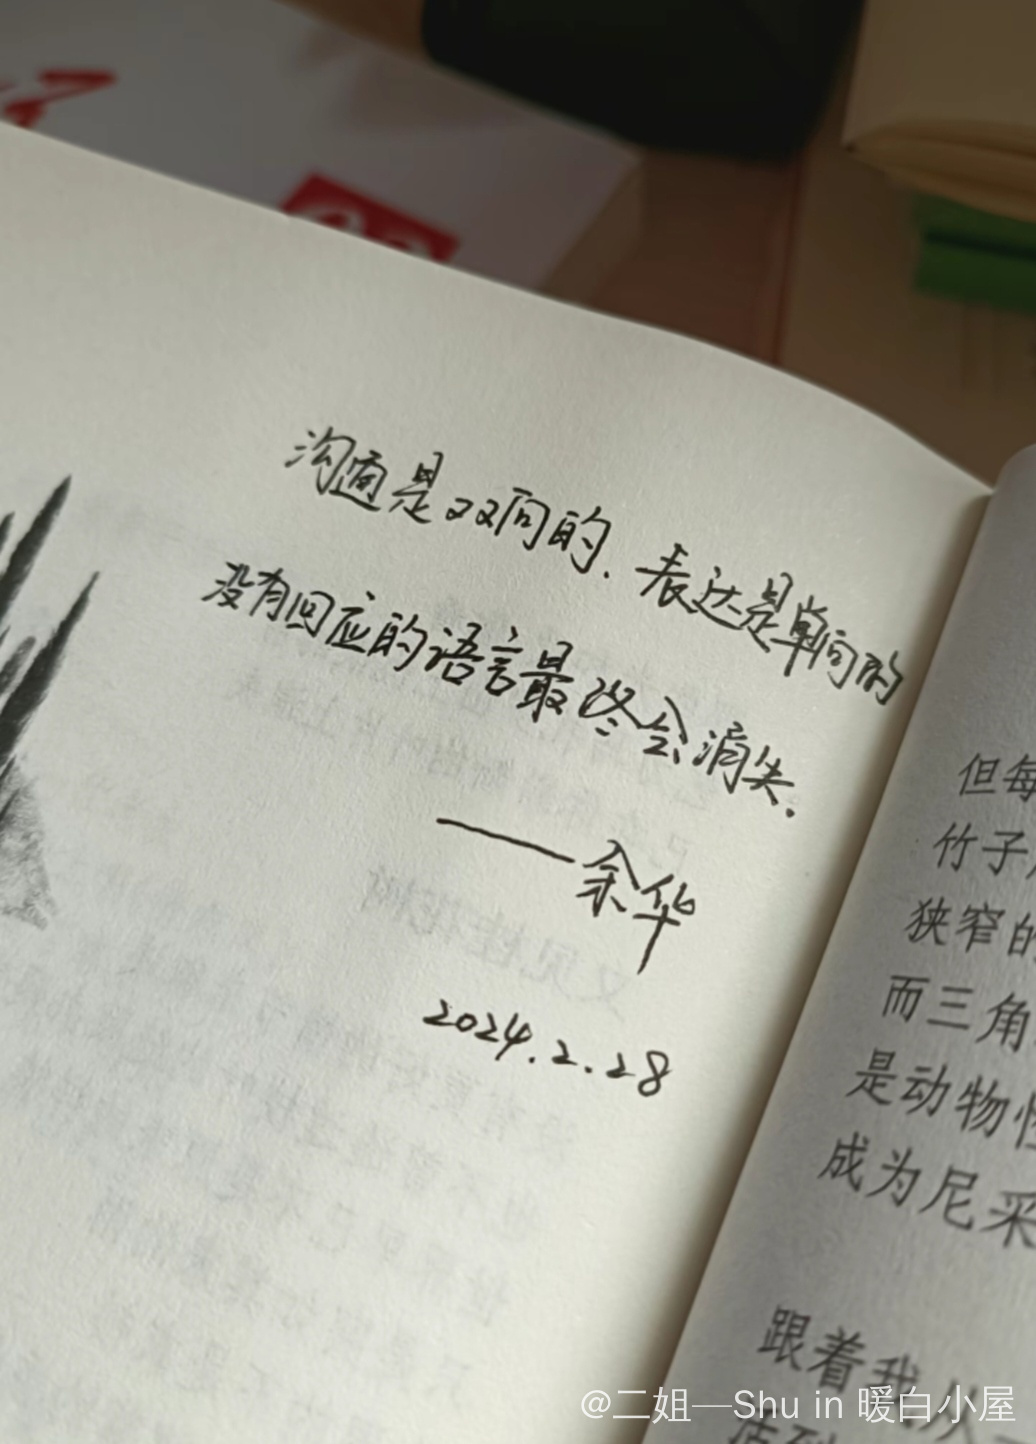 沟通是双向的.表达是单向的
没有回应的语言最终会消失.
——余华
2024.2.28
但每
竹子
狭窄的
而三角
是动物性
成为尼采
跟着我从
@二姐—Shu in 暖白小屋